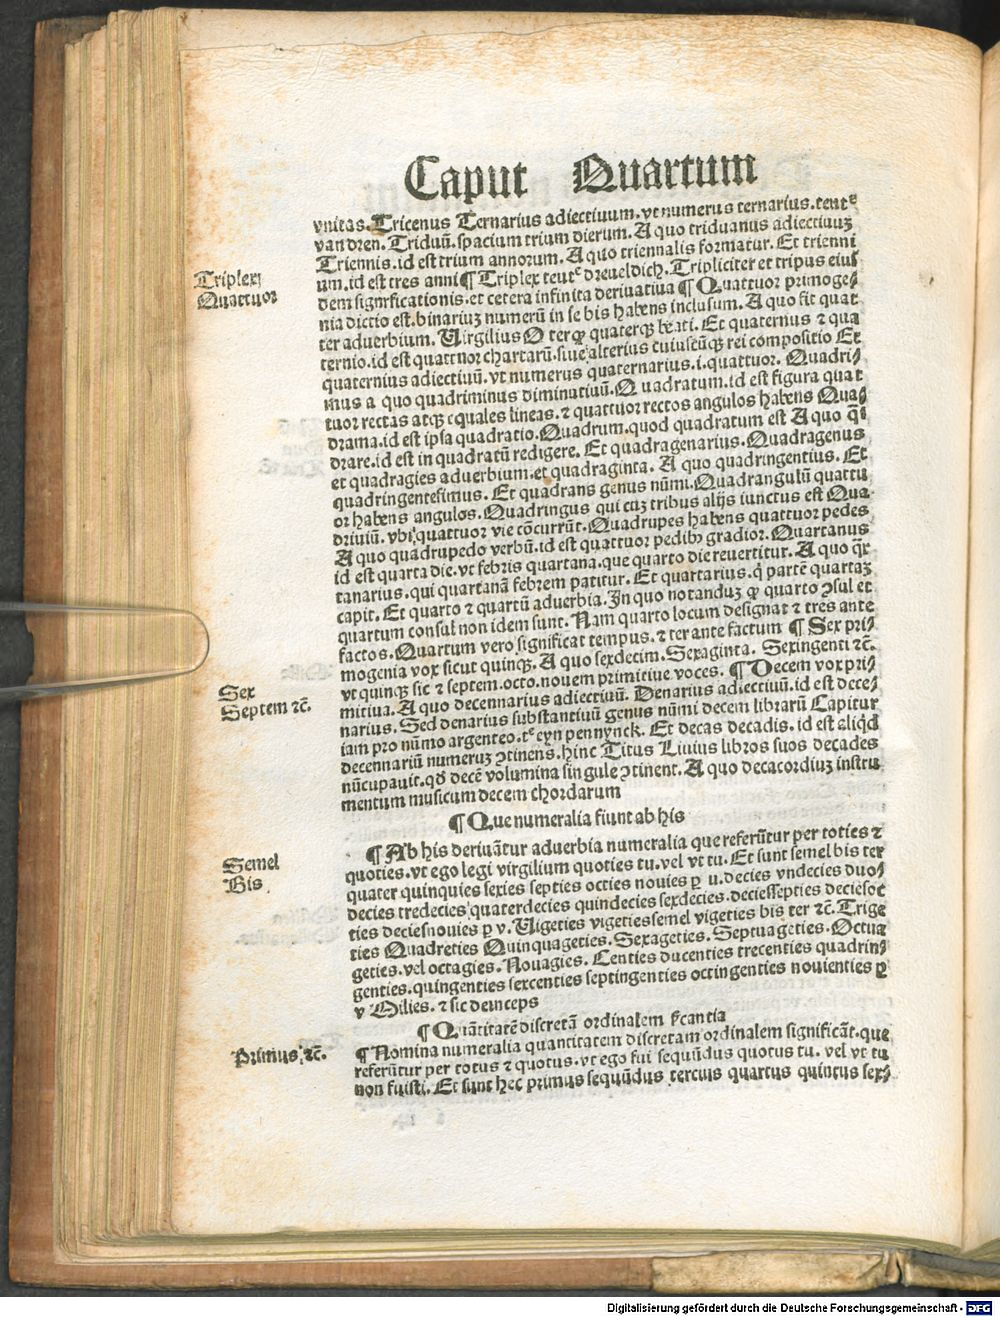 Caput Quartum
vnitas. Tricenus Ternarius adiectiuum. vt numerus ternarius. teutᵉ
van dren. Triduū. spacium trium dierum. A quo triduanus adiectiuuʒ
Triennis. id est trium annorum. A quo triennalis formatur. Et trienni
um. id est tres anni ¶ Triplex teutᵉ dreueldich. Tripliciter et tripus eius
Triplex
dem significationis. et cetera infinita deriuatiua ¶ Quattuor primoge⸗
Quattuor
nia dictio est. binariuʒ numerū in se bis habens inclusum. A quo fit quat
ter aduerbium. Uirgilius O terqꝫ quaterqꝫ beati. Et quaternus ⁊ qua
ternio. id est quattuor chartarū. siue alterius cuiuscūqꝫ rei compositio Et
quaternius adiectiuū. vt numerus quaternarius. i. quattuor. Quadri⸗
mus a quo quadriminus diminutiuū. Quadratum. id est figura quat
tuor rectas atqꝫ equales lineas. ⁊ quattuor rectos angulos habens Qua⸗
drama. id est ipsa quadratio. Quadrum. quod quadratum est A quo q̄⸗
drare. id est in quadratū redigere. Et quadragenarius. Quadragenus
et quadragies aduerbium. et quadraginta. A quo quadringentius. Et
quadringentesimus. Et quadrans genus nūmi. Quadrangulū quattu
or habens angulos. Quadringus qui cuʒ tribus alijs iunctus est Qua⸗
driuiū. vbi quattuor vie cōcurrūt. Quadrupes habens quattuor pedes
A quo quadrupedo verbū. id est quattuor pedibꝫ gradior. Quartanus
id est quarta die. vt febris quartana. que quarto die reuertitur. A quo
tanarius. qui quartanā febrem patitur. Et quartarius. q̄ partē quartaʒ
capit. Et quarto ⁊ quartū aduerbia. In quo notanduʒ ꝙ quarto ꝯsul et
quartum consul non idem sunt. Nam quarto locum designat ⁊ tres ante
factos. Quartum vero significat tempus. ⁊ ter ante factum ¶ Sex pri⸗
mogenia vox sicut quinqꝫ. A quo sexdecim. Sexaginta. Sexingenti ⁊c̄.
Sex
vt quinqꝫ sic ⁊ septem. octo. nouem primitiue voces. ¶ Decem vox pri⸗
Septem ⁊c̄.
mitiua. A quo decennarius adiectiuū. Denarius adiectiuū. id est dece⸗
narius. Sed denarius substantiuū genus nūmi decem librarū Capitur
iam pro nūmo argenteo. tᵉ eyn pennynck. Et decas decadis. id est aliqd̄
decennariū numeruʒ ꝯtinens. hinc Titus Liuius libros suos decades
nūcupauit. qd̄ decē volumina singule ꝯtinent. A quo decacordiuʒ instru
mentum musicum decem chordarum
¶ Que numeralia fiunt ab his
¶ Ab his deriuātur aduerbia numeralia que referūtur per toties ⁊
Semel
quoties. vt ego legi virgilium quoties tu. vel vt tu. Et sunt semel bis ter
Bis
quater quinquies sexies septies octies nouies ꝑ u. decies vndecies duo⸗
decies tredecies quaterdecies quindecies sexdecies. deciessepties deciesoc
ties deciesnouies ꝑ v. Uigeties vigetiessemel vigeties bis ter ⁊c̄. Trige
ties Quadreties Quinquageties. Sexageties. Septuageties. Octua
geties. vel octagies. Nouagies. Centies ducenties trecenties quadrin⸗
genties. quingenties sexcenties septingenties octingenties nouienties ꝑ
v Milies. ⁊ sic deinceps
¶ Quātitatē discretā ordinalem
¶ Nomina numeralia quantitatem discretam ordinalem significāt. que
Primus ⁊c̄.
referūtur per totus ⁊ quotus. vt ego fui sequūdus quotus tu. vel vt tu
non fuisti. Et sunt hec primus sequūdus tercius quartus quintus sex⸗
Digitalisierung gefördert durch die Deutsche Forschungsgemeinschaft - DFG